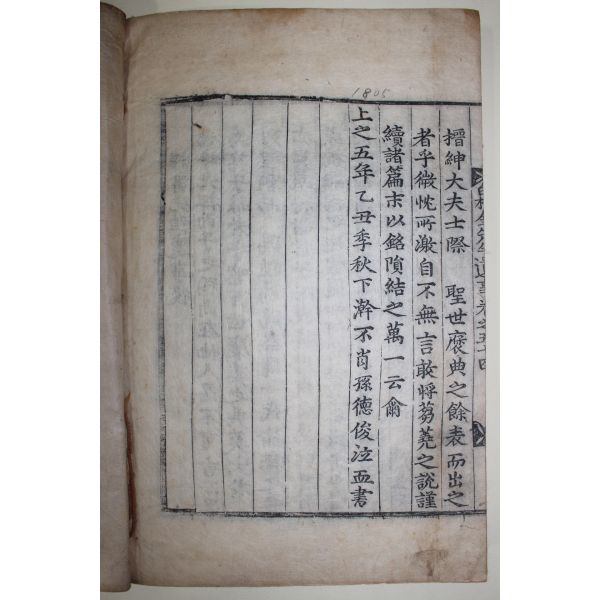 1805
搢紳大夫士際 聖世褒典之餘表而出之
者乎微忱所激自不無言敢將蒭蕘之說謹
續諸篇末以銘隕結之萬一云爾
上之五年乙丑季秋下澣不肖孫德俊泣血書
遺事卷之五